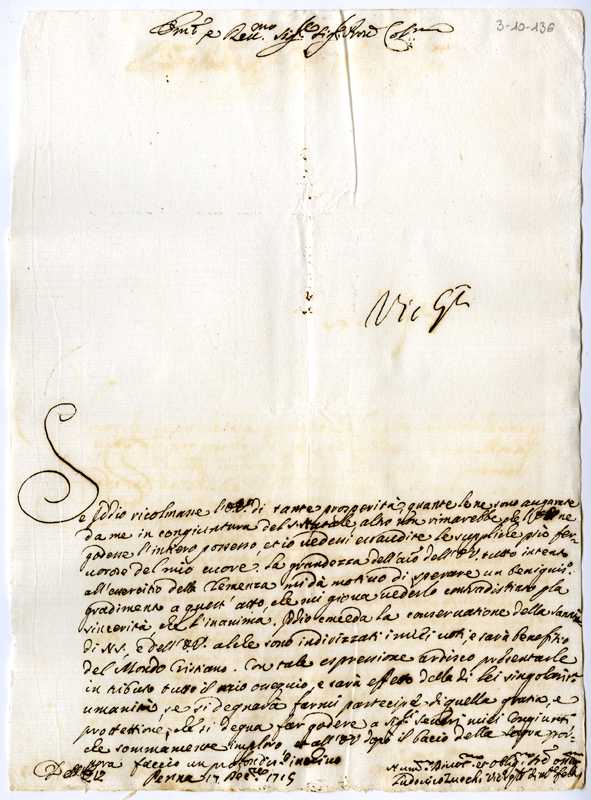 3-10-136
Em.o e Rev.mo Sig.re Sig.re Pron
Vic G.te
Se Iddio ricolmasse l'E.V. di tante prosperità, quante le ne sono augurate
da me in congiuntura del S. Natale, altro non rimarebbe che
godesse l'intero possesso, et io vederei essaudite le suppliche più fer-
vorose del mio cuore. La grandezza dell'animo dell'E.V. tutto intento
all'esercitio della Clemenza mi dà motivo di sperare un benignis.mo
gradimento a quest'atto, che mi giova vederlo contradistinto p. la
sincerità, che l'inanima. Iddio conceda la conservatione della Santità
di N.S., e dell'E.V. al che sono indirizzati i miei voti, e sarà beneficio
del Mondo Cristiano. Con tale espressione ardisco presentarle
in tributo tutto il mio ossequio, e sarà effetto della di lei singolariss.a
umanità, se si degnerà farmi partecipe di quella gratia, e
protettione, che si degna far godere a Sig.ri miei Congiunti
che sommamente imploro, et all'E.V. dopo il bacio della sagra por-
pora faccio un profondiss.o inchino
Dell'E.V. Penna 17 Dec.bre 1715
Humil.mo Divot.mo et Oblig.mo